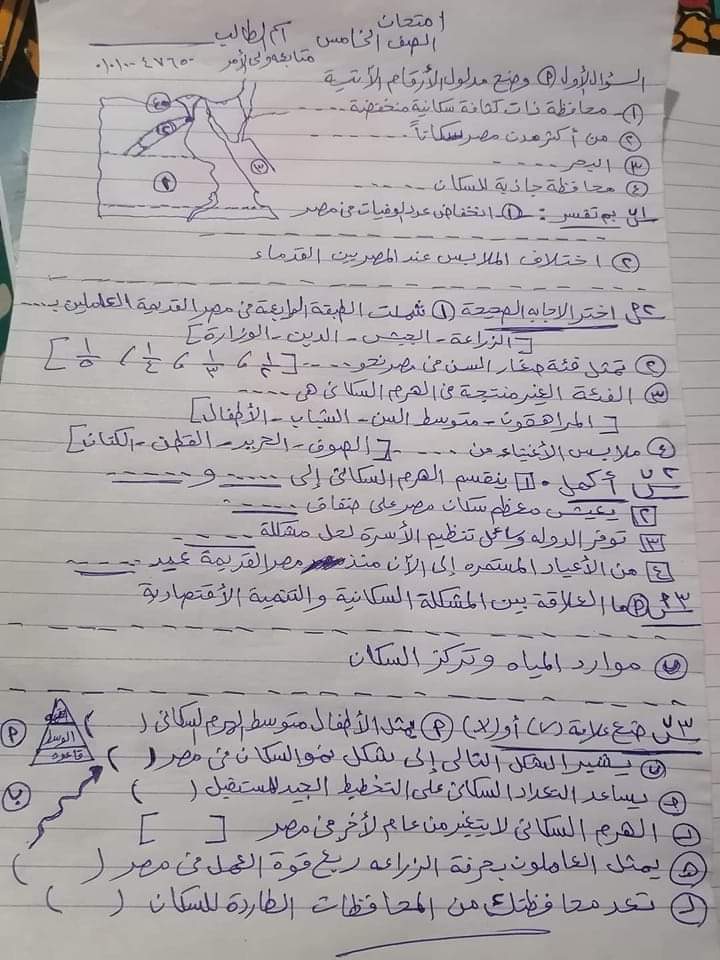 امتحان
الصف الخامس اسم الطالب
متابعة ولى الأمر ٠١٠١٠٠٤٧٦٥٠
السؤال الأول (P) وضع مدلول الأرقام الآتية
① محافظة ذات كثافة سكانية منخفضة ----
② من أكثر مدن مصر سكاناً ----
③ البحر -----
④ محافظة جاذبة للسكان -----
٤ ٢ ٣ ٢
س١/ب بم تفسر : ① انخفاض عدد الوفيات فى مصر
② اختلاف الملابس عند المصريين القدماء
س٢ P اختر الإجابة الصحيحة ① شملت الطبقة الرابعة فى مصر القديمة العاملين بـ ---
[الزراعة - الجيش - الدين - الوزارة]
② تمثل فئة صغار السن فى مصر نحو ---- [١/٢ ، ١/٣ ، ١/٤ ، ١/٥]
③ الفئة الغير منتجة فى الهرم السكانى هى ----
[المراهقون - متوسط السن - الشباب - الأطفال]
④ ملابس الأغنياء من ---- [الصوف - الحرير - القطن - الكتان]
س٢ ب أكمل ١ ينقسم الهرم السكانى إلى ---- و ----
٢ يعيش معظم سكان مصر على ضفاف ----
٣ توفر الدوله وسائل تنظيم الأسرة لحل مشكلة ----
٤ من الأعياد المستمره إلى الآن منذ مصر القديمة عيد ----
س٣ P ما العلاقة بين المشكلة السكانية والتنمية الأقتصادية
ب موارد المياه وتركز السكان
س٣ ب ضع علامة (√) أو (X) P يمثل الأطفال متوسط الهرم السكانى ( )
P الوسط قاعدة
ب يشير الشكل التالى إلى شكل نمو السكان فى مصر ( )
ب
ج يساعد التعداد السكانى على التخطيط الجيد للمستقبل ( )
د الهرم السكانى لا يتغير من عام لأخر فى مصر [ ]
هـ يمثل العاملون بحرفة الزراعه ربع قوة العمل فى مصر ( )
و تعد محافظتك من المحافظات الطاردة للسكان ( )